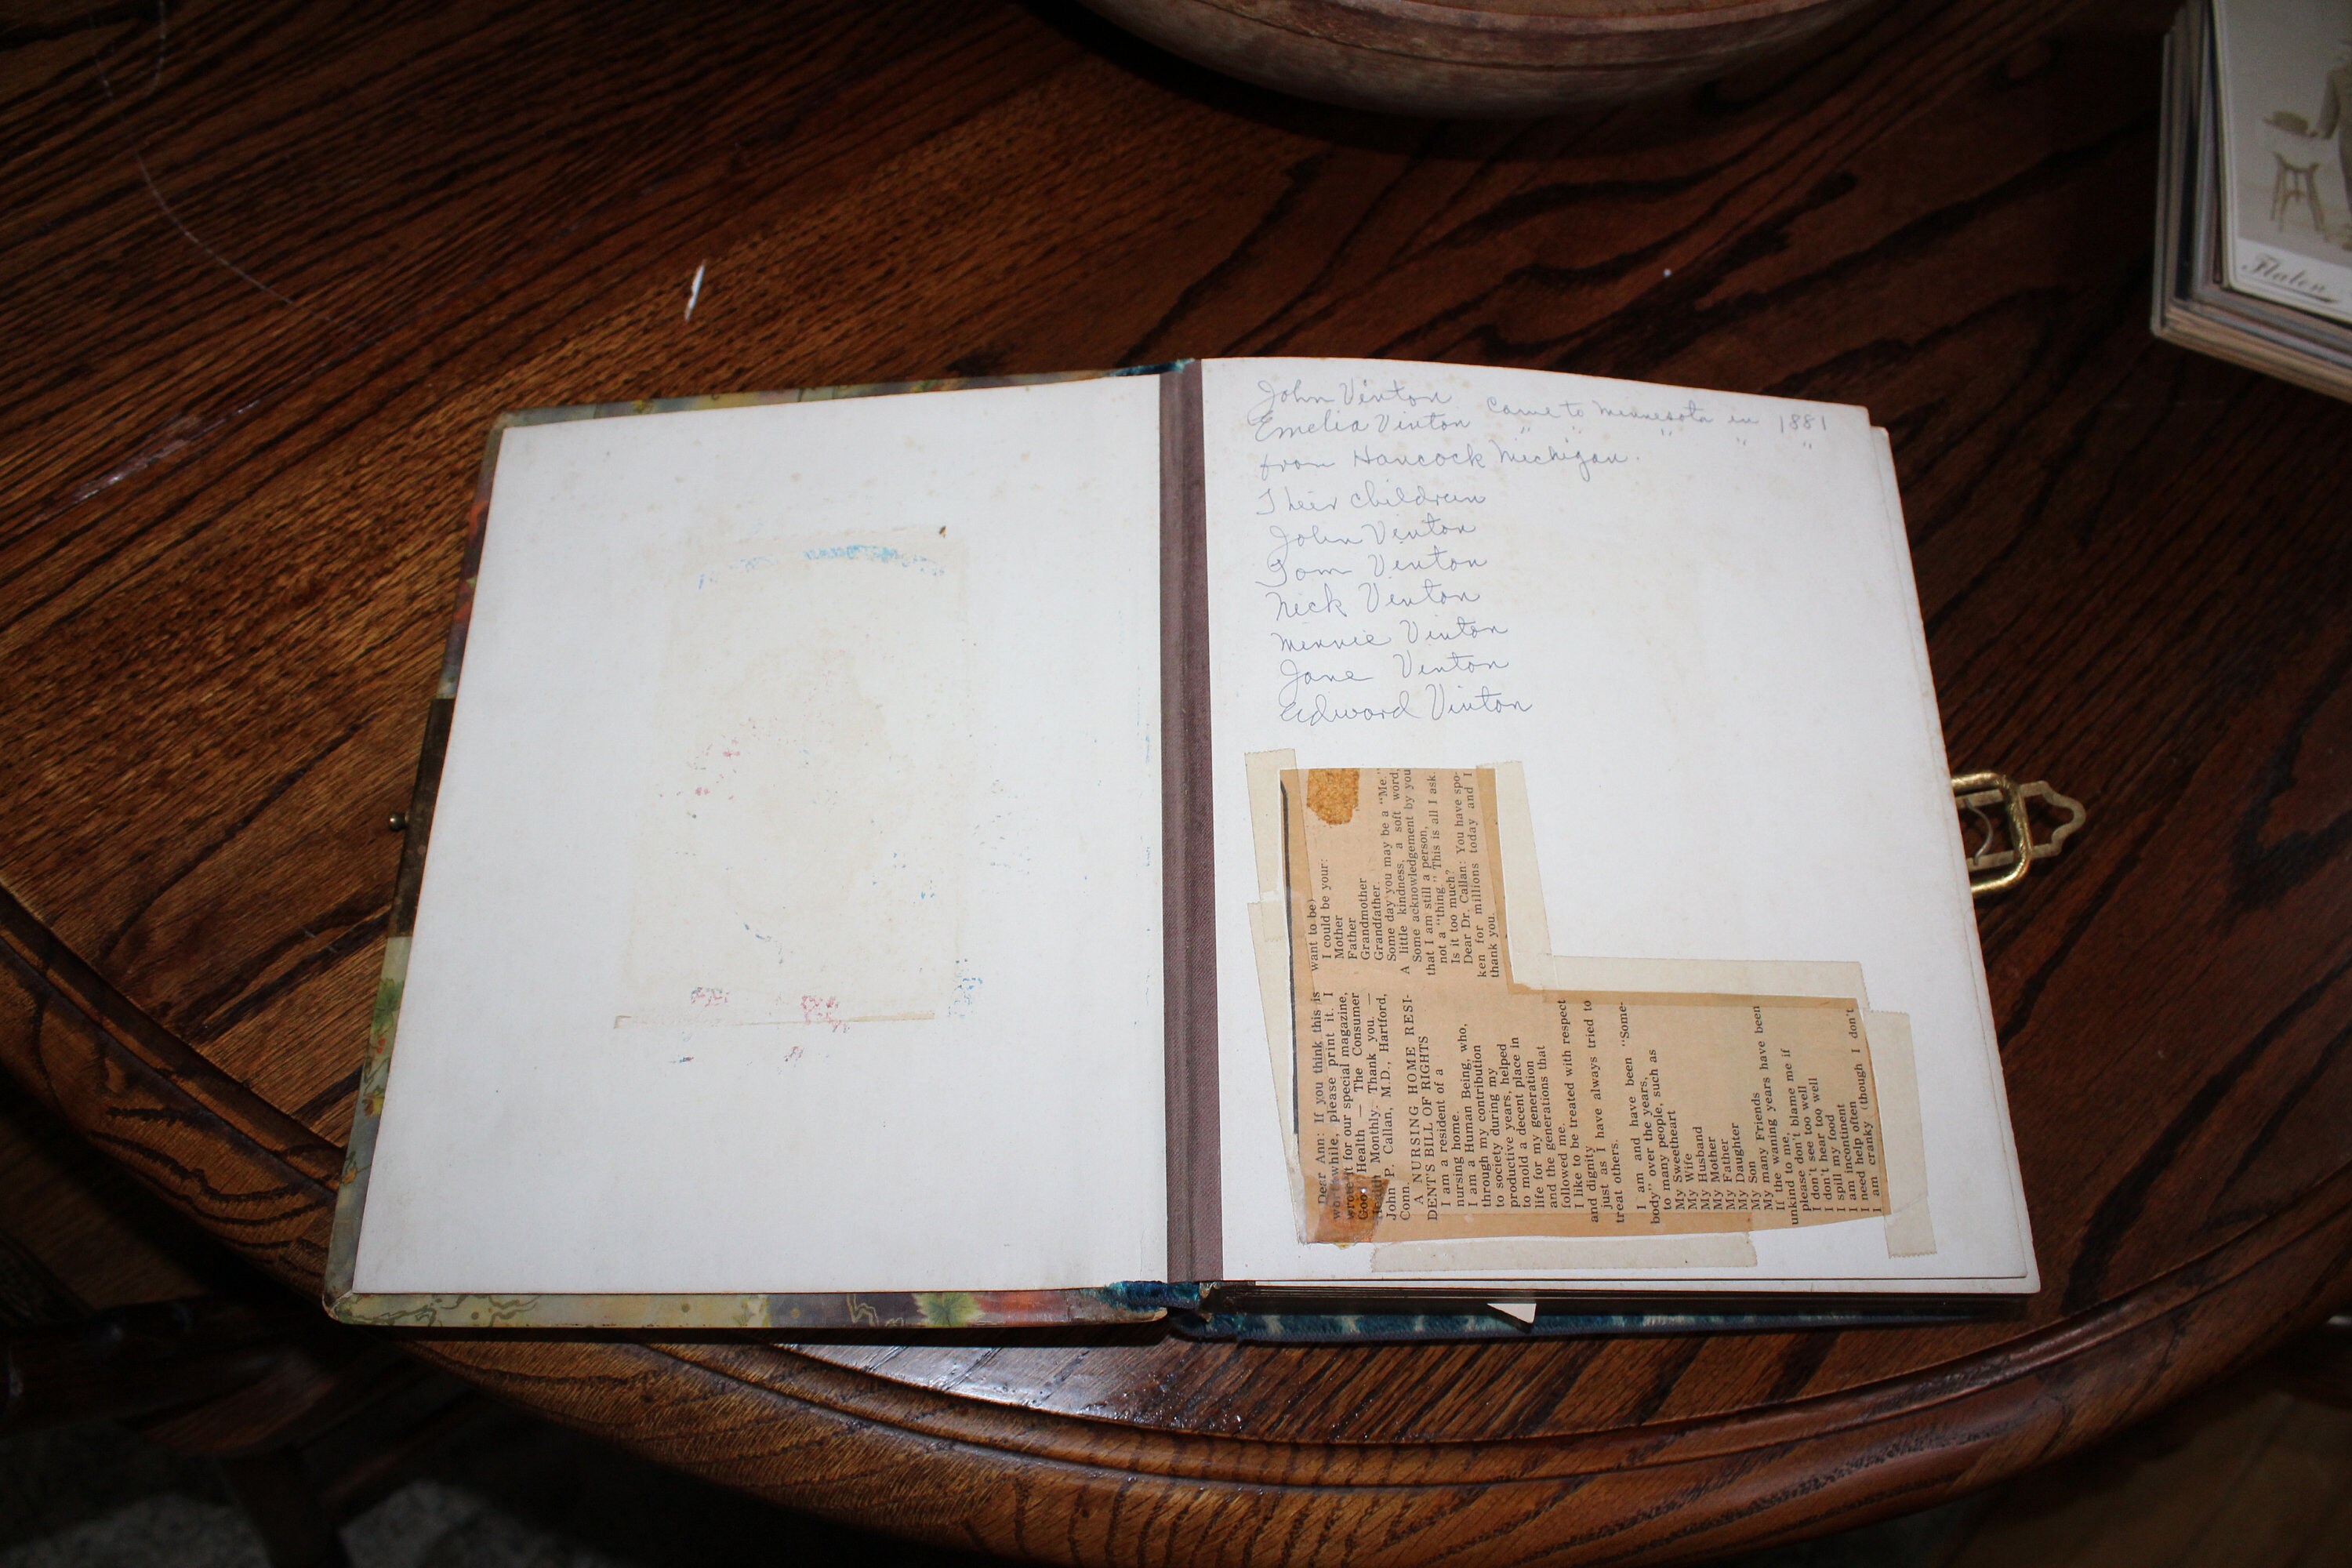 John Vinton
Emelia Vinton came to Minnesota in 1881
" " " " "
from Hancock Michigan.
Their children
John Vinton
Tom Vinton
Nick Vinton
Minnie Vinton
Jane Vinton
Edward Vinton
Dear Ann: If you think this is
worthwhile, please print it. I
wrote it for our special magazine,
Good Health — The Consumer
Health Monthly. Thank you. —
John P. Callan, M.D., Hartford,
Conn.
A NURSING HOME RESI-
DENT'S BILL OF RIGHTS
I am a resident of a
nursing home.
I am a Human Being, who,
through my contribution
to society during my
productive years, helped
to mold a decent place in
life for my generation
and the generations that
followed me.
I like to be treated with respect
and dignity
just as I have always tried to
treat others.
I am and have been "Some-
body" over the years,
to many people, such as
My Sweetheart
My Wife
My Husband
My Mother
My Father
My Daughter
My Son
My many Friends
If the waning years have been
unkind to me,
please don't blame me if
I don't see too well
I don't hear too well
I spill my food
I am incontinent
I need help often
I am cranky (though I don't
want to be)
I could be your:
Mother
Father
Grandmother
Grandfather.
Some day you may be a "Me."
A little kindness, a soft word,
Some acknowledgement by you
that I am still a person,
not a "thing." This is all I ask.
Is it too much?
Dear Dr. Callan: You have spo-
ken for millions today and I
thank you.
Flaten